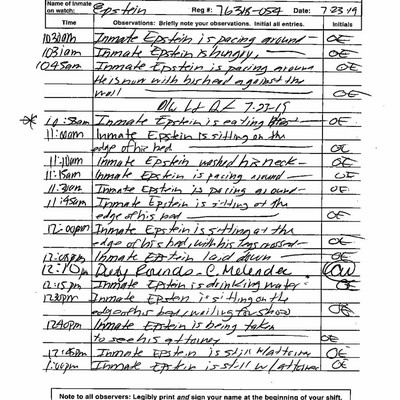 Name of Inmate on watch: Epstein Reg #: 76318-054 7-23-19
Time Observations: Briefly note your observations. Initial all entries. Initials
10:30am Inmate Epstein is pacing around OE
10:31am Inmate Epstein is hungry, OE
10:45am Inmate Epstein is pacing around
He is now with his head against the
wall OE
7-27-19
* 10:58am Inmate Epstein is eating OE
11:00am Inmate Epstein is sitting on the
edge of his bed OE
11:10am Inmate Epstein washed his neck OE
11:15am Inmate Epstein is pacing around OE
11:30am Inmate Epstein is pacing around OE
11:45am Inmate Epstein is sitting at the
edge of his bed OE
12:00pm Inmate Epstein is sitting at the
edge of his bed, with his legs crossed OE
12:05pm Inmate Epstein laid down OE
12:10pm Duty Rounds - C. Melendez
12:15pm Inmate Epstein is drinking water OE
12:30pm Inmate Epstein is sitting on the
edge of his bed, waiting to OE
12:40pm Inmate Epstein is being taken
to see his attorney OE
12:45pm Inmate Epstein is still w/ attorney OE
1:00pm Inmate Epstein is still w/ attorney OE
Note to all observers: Legibly print and sign your name at the beginning of your shift.